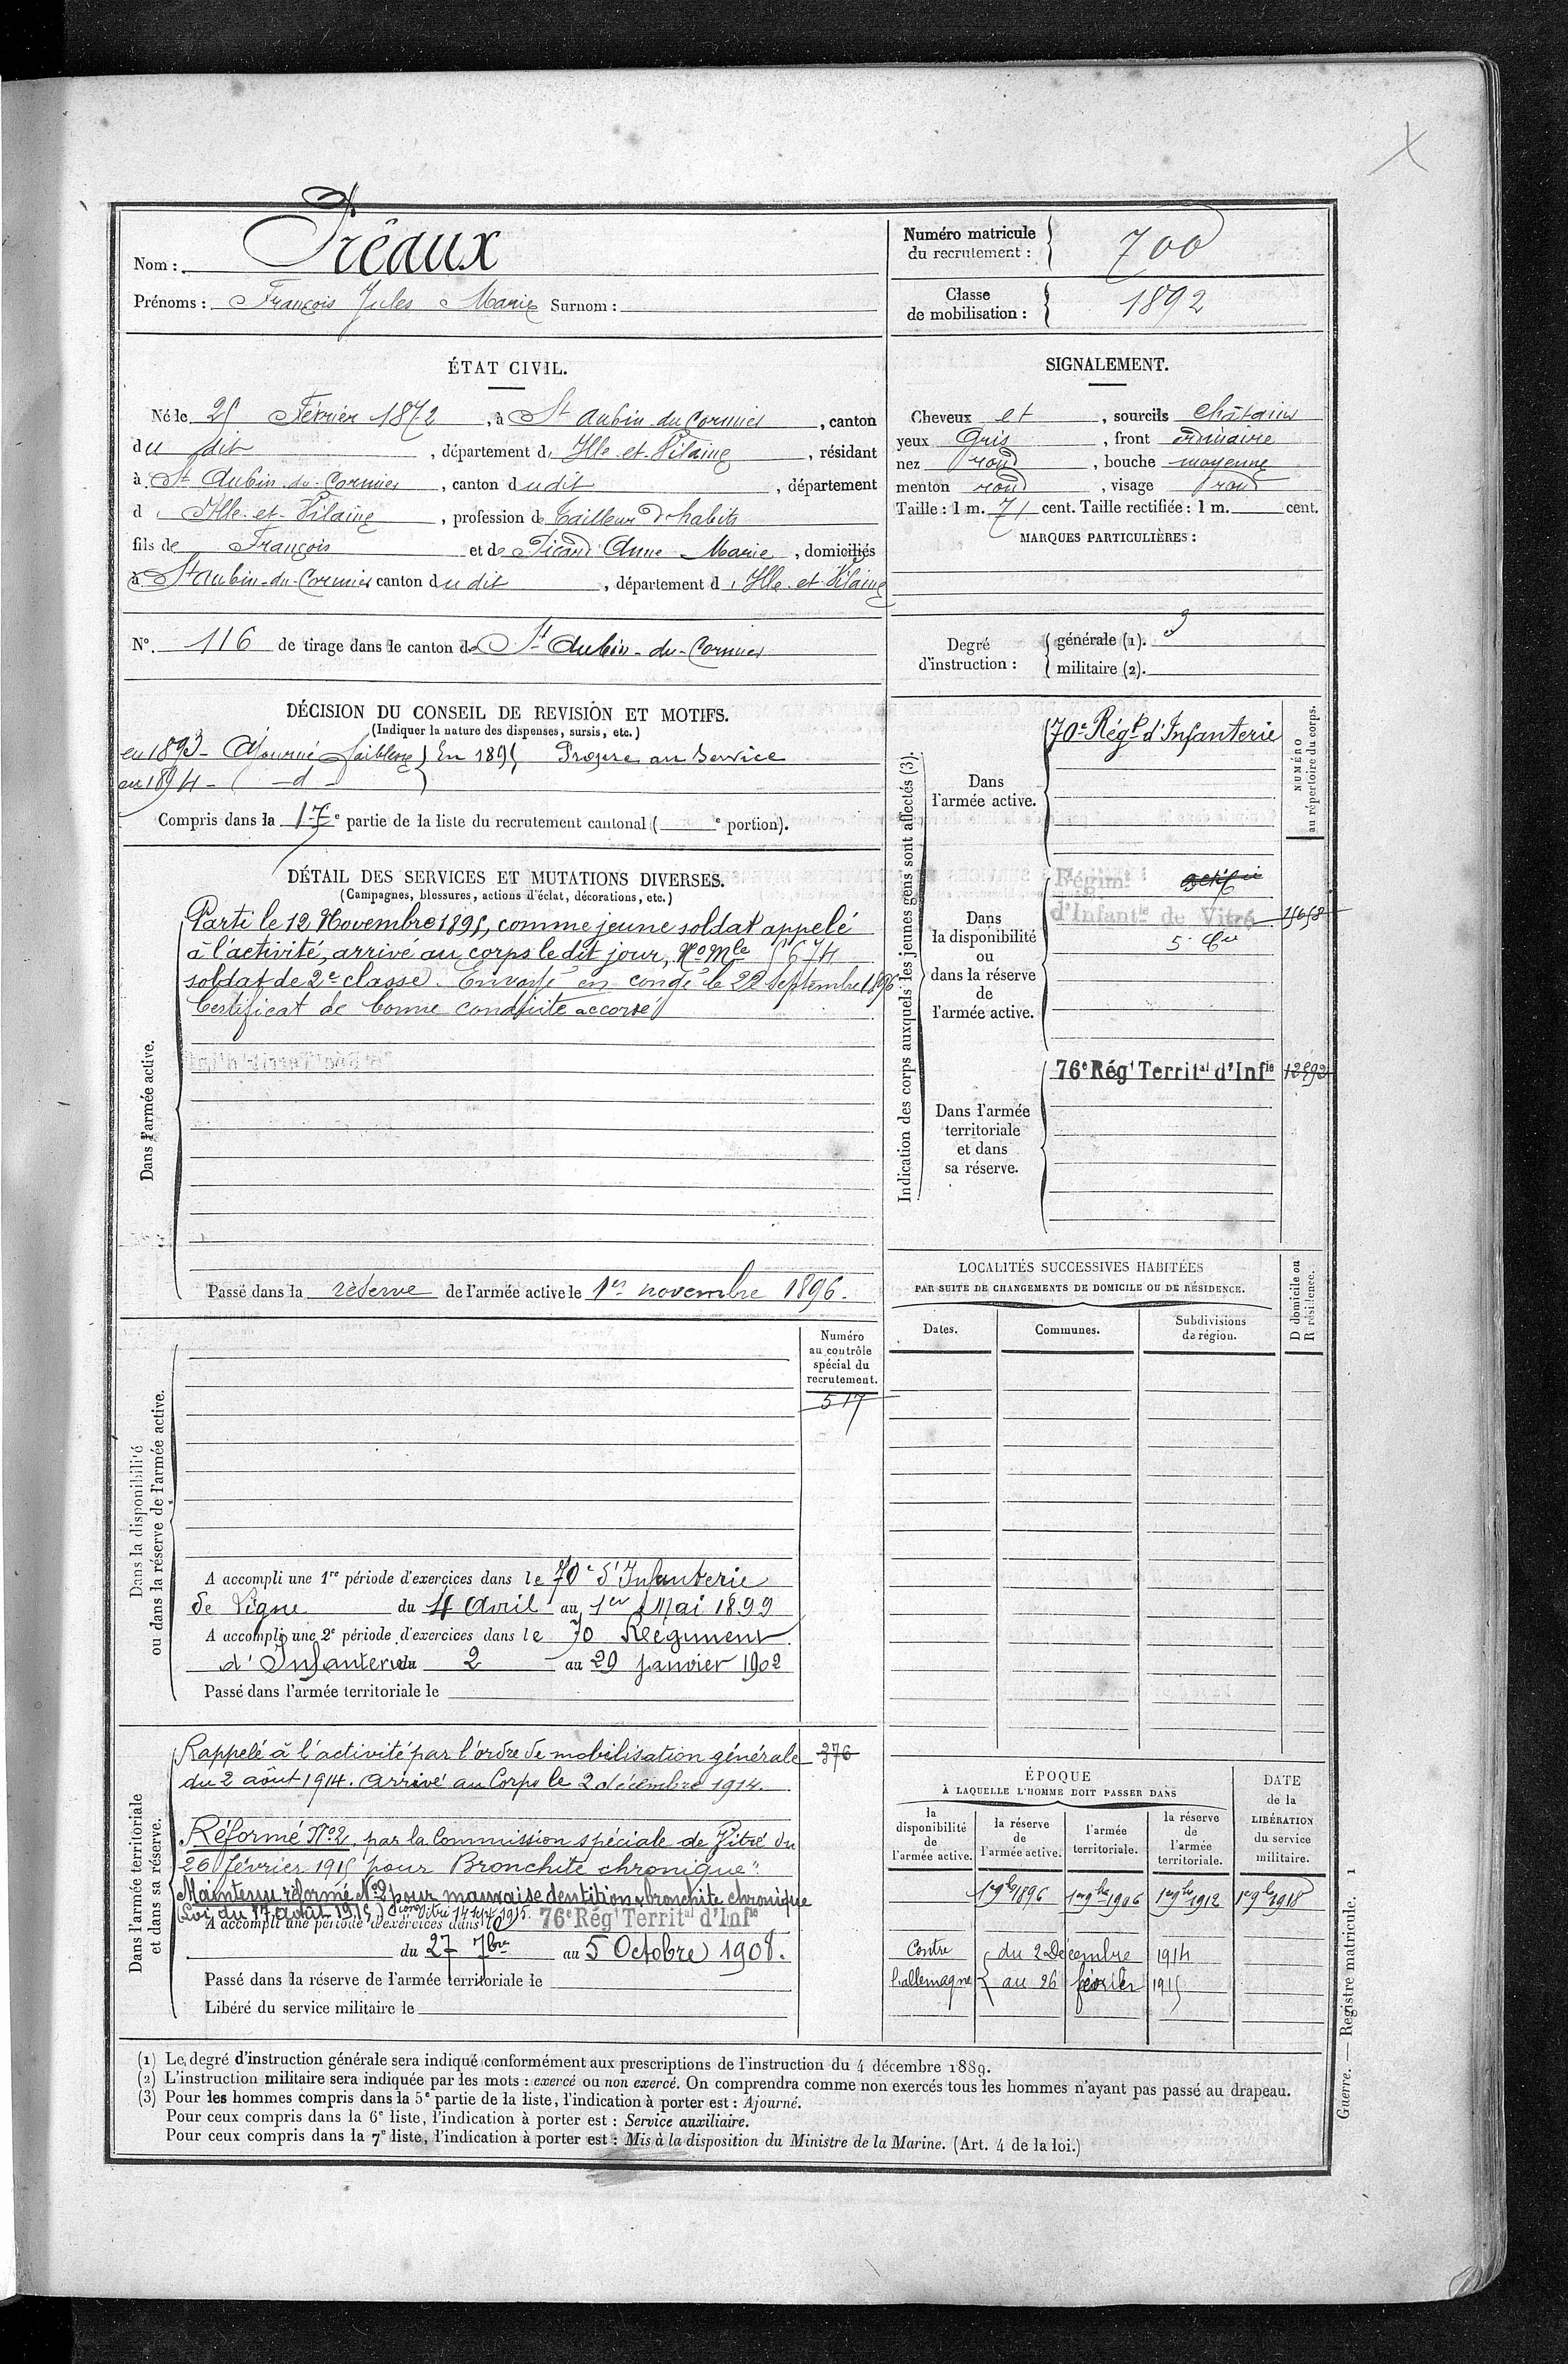 Nom : Préaux
Prénoms : François Jules Marie Surnom :
Numéro matricule
du recrutement : 700
Classe
de mobilisation : 1892
ÉTAT CIVIL.
Né le 25 Février 1872, à St Aubin du Cormier, canton
du dit, département d' Ille-et-Vilaine, résidant
à St Aubin du Cormier, canton dudit, département
d' Ille-et-Vilaine, profession de tailleur d'habits
fils de François et de Picard Anne Marie, domiciliés
à St Aubin-du-Cormier canton dudit, département d' Ille-et-Vilaine
N° 116 de tirage dans le canton de St Aubin-du-Cormier
SIGNALEMENT.
Cheveux et, sourcils châtains
yeux Gris, front ordinaire
nez rond, bouche moyenne
menton rond, visage rond
Taille : 1 m. 71 cent. Taille rectifiée : 1 m. cent.
MARQUES PARTICULIÈRES :
Degré
d'instruction :
générale (1). 3
militaire (2).
DÉCISION DU CONSEIL DE REVISION ET MOTIFS.
(Indiquer la nature des dispenses, sursis, etc.)
en 1893 - Ajourné faiblesse } En 1895 Propre au Service
en 1894 - ( - d - )
Compris dans la 1re partie de la liste du recrutement cantonal ( e portion).
DÉTAIL DES SERVICES ET MUTATIONS DIVERSES.
(Campagnes, blessures, actions d'éclat, décorations, etc.)
Dans l'armée active.
Parti le 12 Novembre 1895, comme jeune soldat appelé
à l'activité, arrivé au corps le dit jour, No Mle 5674
soldat de 2e classe. Envoyé en congé le 22 Septembre 1896
Certificat de bonne conduite accordé
Passé dans la réserve de l'armée active le 1er novembre 1896.
Indication des corps auxquels les jeunes gens sont affectés (3).
NUMÉRO
au répertoire du corps.
Dans
l'armée active.
70e Régt d'Infanterie
Dans
la disponibilité
ou
dans la réserve
de
l'armée active.
Régimt
d'Infantie de Vitré
5e Cie
Dans l'armée
territoriale
et dans
sa réserve.
76e Régt Territal d'Infie
LOCALITÉS SUCCESSIVES HABITÉES
PAR SUITE DE CHANGEMENTS DE DOMICILE OU DE RÉSIDENCE.
Dates.
Communes.
Subdivisions
de région.
D domicile ou
R résidence.
Dans la disponibilité
ou dans la réserve de l'armée active.
Numéro
au contrôle
spécial du
recrutement.
517
A accompli une 1re période d'exercices dans le 70e d'Infanterie
de Ligne du 4 Avril au 1er Mai 1899
A accompli une 2e période d'exercices dans le 70 Régiment
d'Infanterie du 2 au 29 janvier 1902
Passé dans l'armée territoriale le
Dans l'armée territoriale
et dans sa réserve.
Rappelé à l'activité par l'ordre de mobilisation générale
376
du 2 août 1914. Arrivé au Corps le 2 décembre 1914.
Réformé No 2, par la Commission spéciale de Vitré du
26 février 1915 pour "Bronchite chronique"
Maintenu réformé No 2 pour mauvaise dentition, bronchite chronique
(Loi du 17 Août 1915) Con Vitré 14 sept 1915.
A accompli une période d'exercices dans le 76e Régt Territal d'Infie
du 27 7bre au 5 Octobre 1908.
Passé dans la réserve de l'armée territoriale le
Libéré du service militaire le
ÉPOQUE
À LAQUELLE L'HOMME DOIT PASSER DANS
la
disponibilité
de
l'armée active.
la réserve
de
l'armée active.
l'armée
territoriale.
la réserve
de
l'armée
territoriale.
DATE
de la
LIBÉRATION
du service
militaire.
1er 9bre 1896 1er 9bre 1906 1er 9bre 1912 1er 9bre 1918
Contre { du 2 Décembre 1914
l'allemagne { au 26 février 1915
(1) Le degré d'instruction générale sera indiqué conformément aux prescriptions de l'instruction du 4 décembre 1889.
(2) L'instruction militaire sera indiquée par les mots : exercé ou non exercé. On comprendra comme non exercés tous les hommes n'ayant pas passé au drapeau.
(3) Pour les hommes compris dans la 5e partie de la liste, l'indication à porter est : Ajourné.
Pour ceux compris dans la 6e liste, l'indication à porter est : Service auxiliaire.
Pour ceux compris dans la 7e liste, l'indication à porter est : Mis à la disposition du Ministre de la Marine. (Art. 4 de la loi.)
Guerre. — Registre matricule. 1